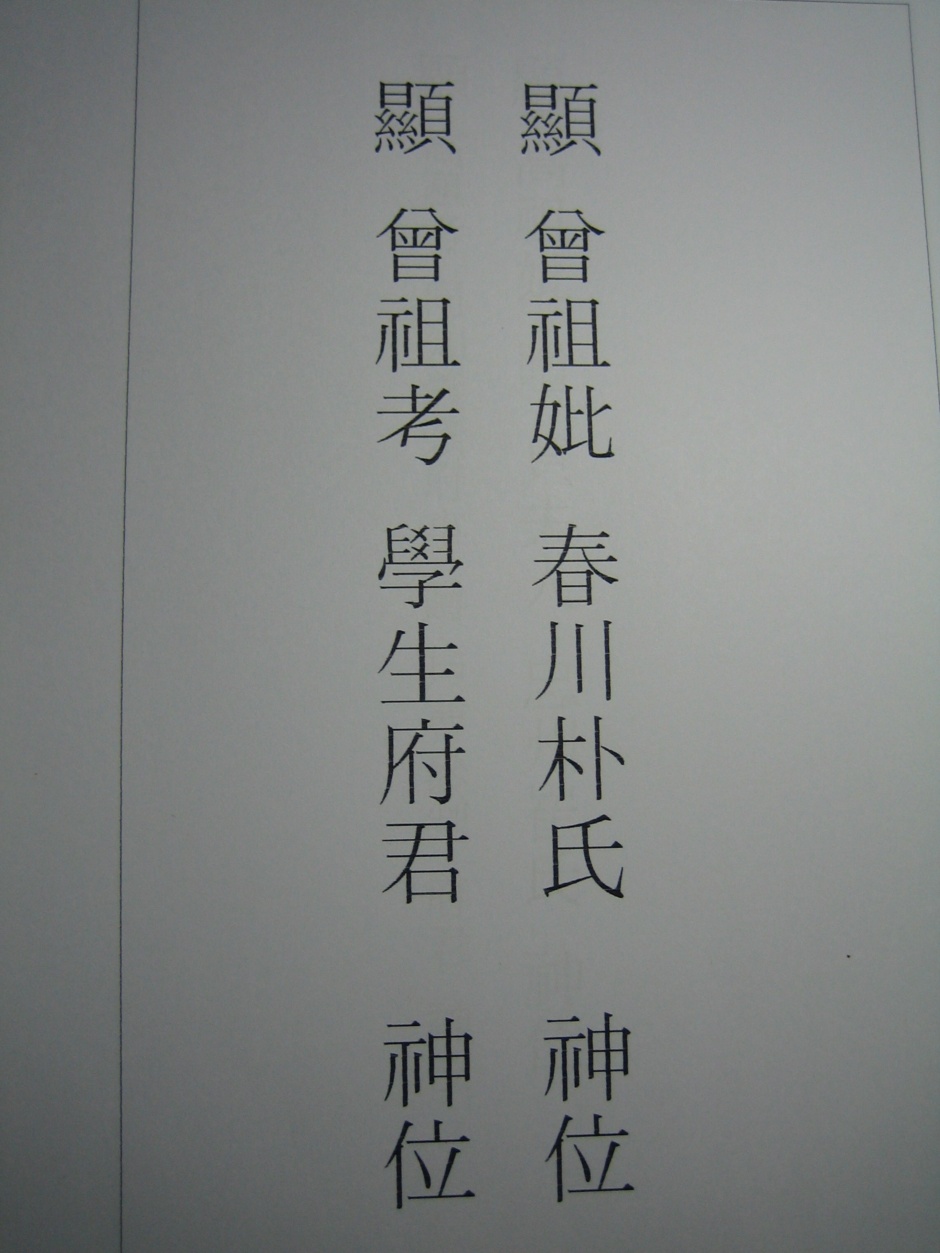 顯 曾祖妣 春川朴氏 神位
顯 曾祖考 學生府君 神位